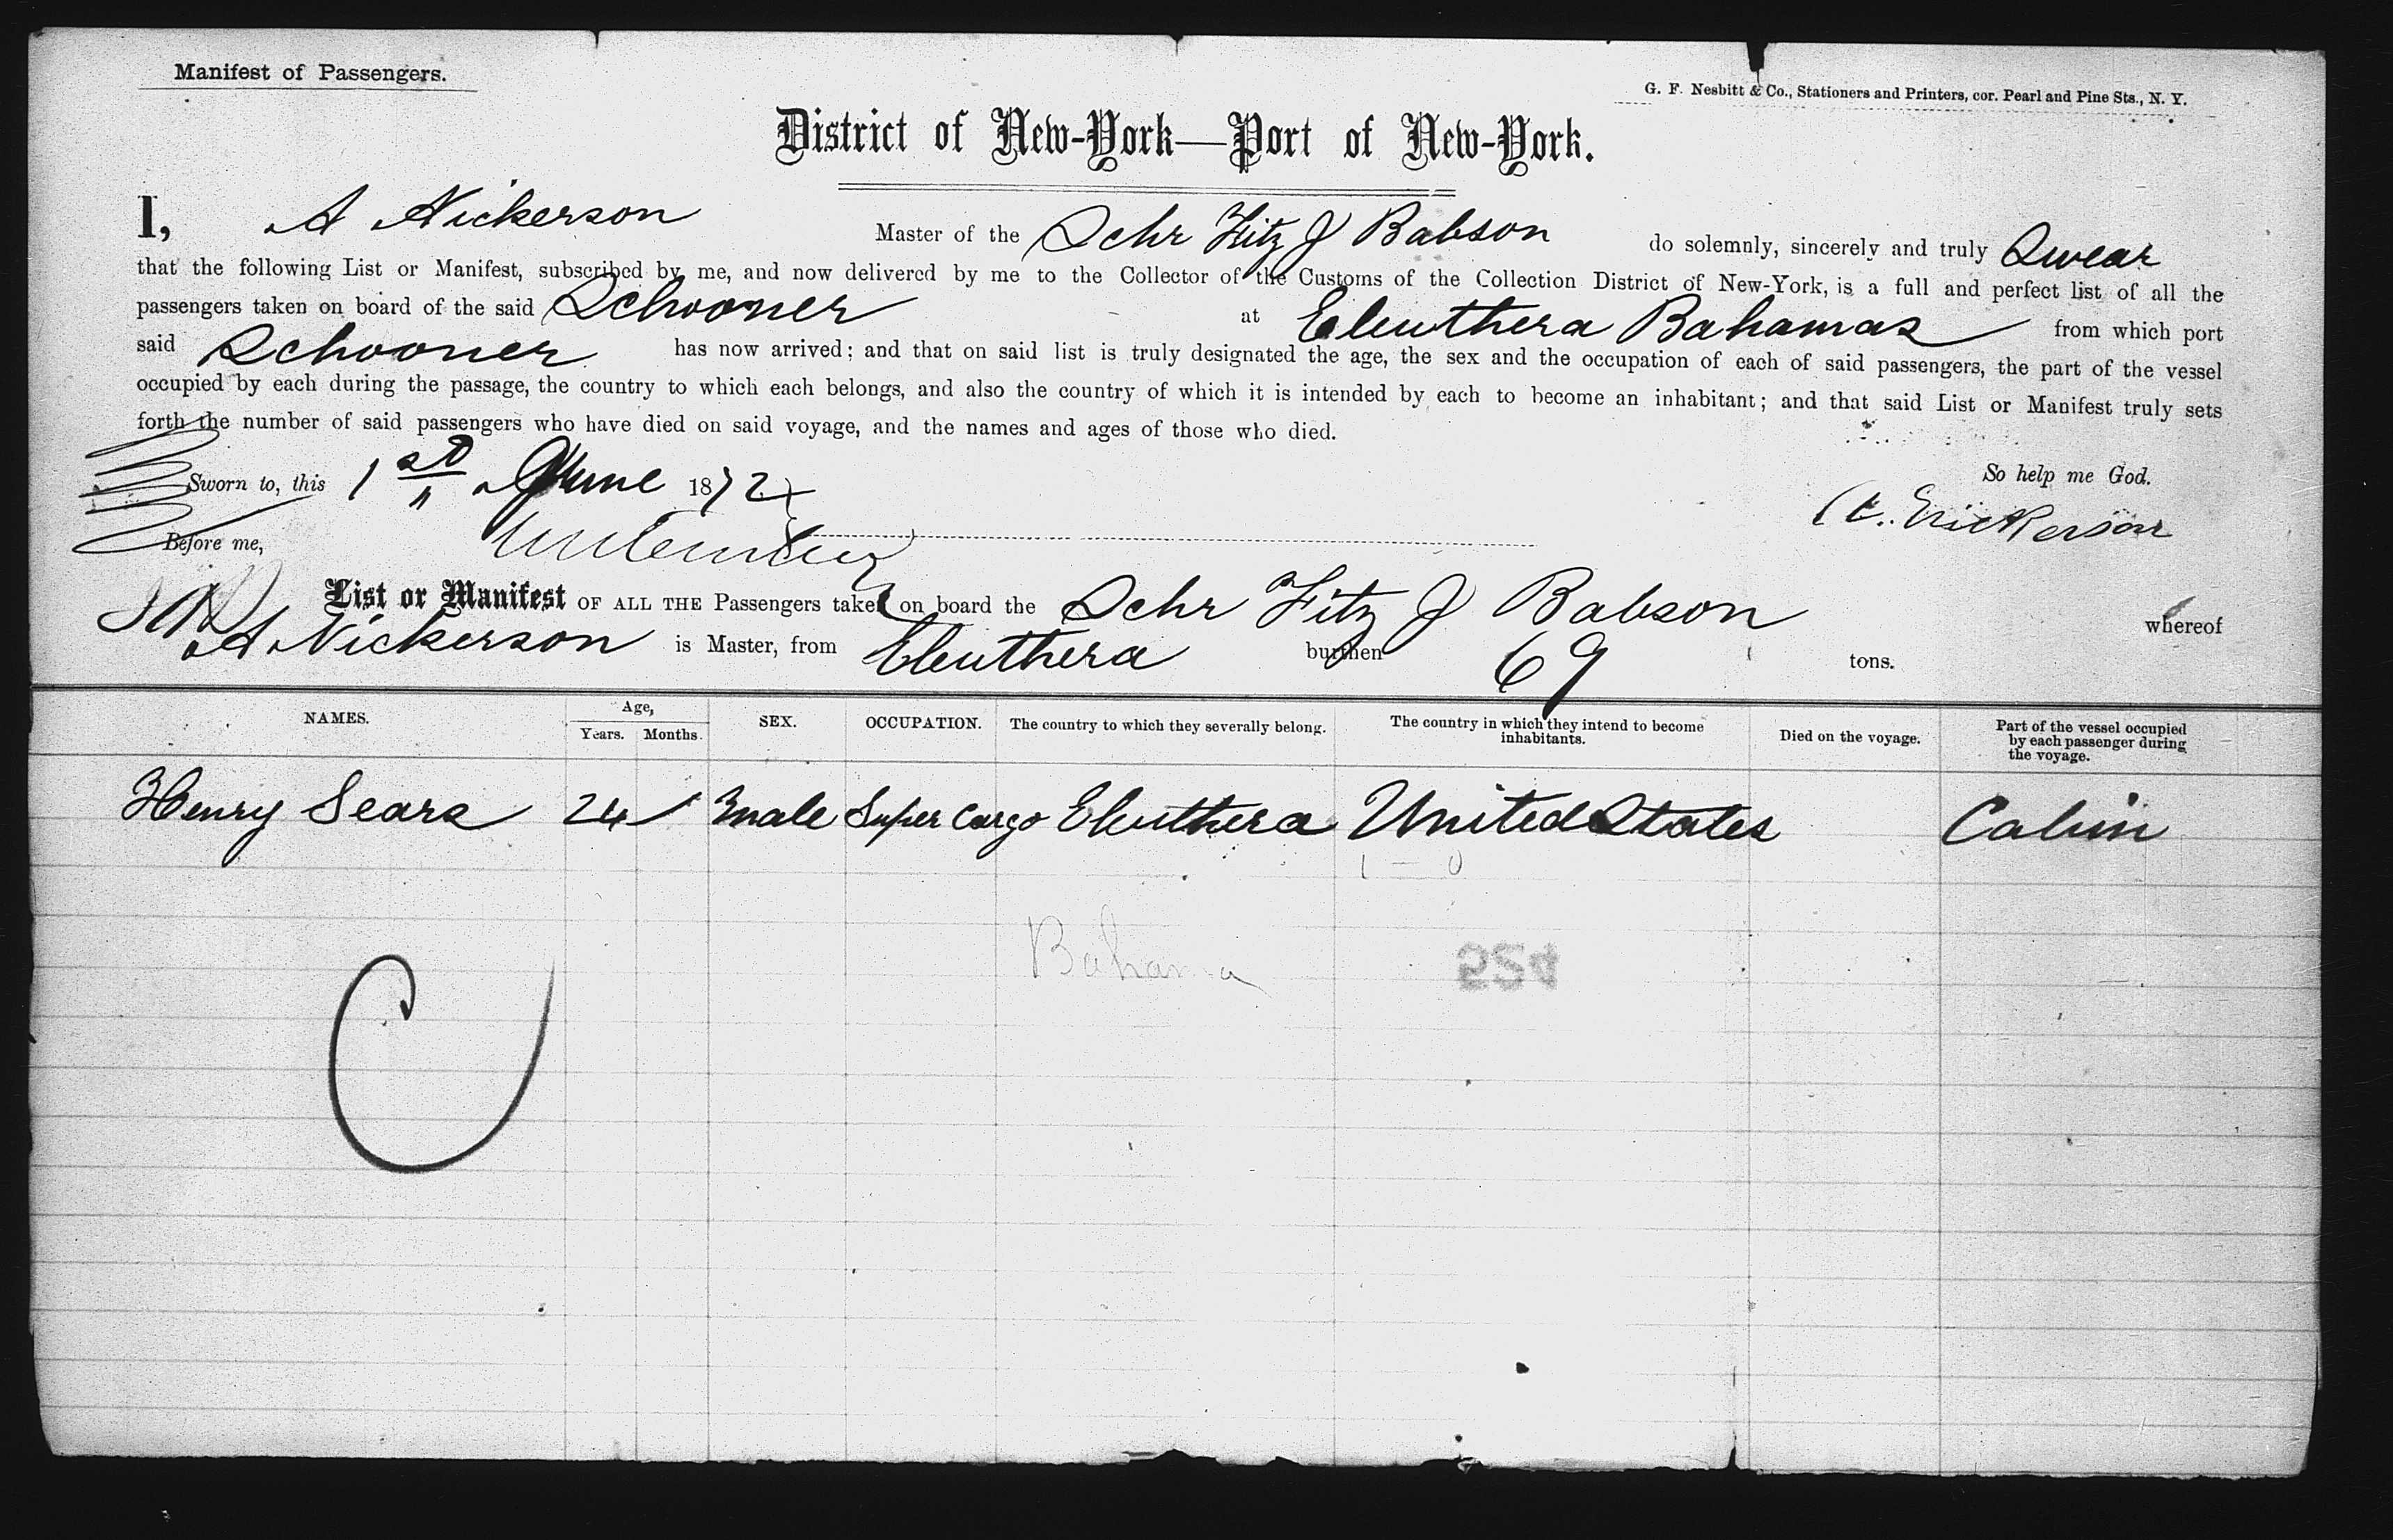 Manifest of Passengers.
G. F. Nesbitt & Co., Stationers and Printers, cor. Pearl and Pine Sts., N. Y.
District of New-York—Port of New-York.
I, A Nickerson Master of the Schr Fitz J Babson do solemnly, sincerely and truly Swear
that the following List or Manifest, subscribed by me, and now delivered by me to the Collector of the Customs of the Collection District of New-York, is a full and perfect list of all the
passengers taken on board of the said Schooner at Eleuthera Bahamas from which port
said Schooner has now arrived; and that on said list is truly designated the age, the sex and the occupation of each of said passengers, the part of the vessel
occupied by each during the passage, the country to which each belongs, and also the country of which it is intended by each to become an inhabitant; and that said List or Manifest truly sets
forth the number of said passengers who have died on said voyage, and the names and ages of those who died.
Sworn to, this 1st June 1872 So help me God.
Before me, A. Nickerson
List or Manifest OF ALL THE Passengers taken on board the Schr Fitz J Babson whereof
A Nickerson is Master, from Eleuthera burthen 69 tons.
NAMES. Age, Years. Months. SEX. OCCUPATION. The country to which they severally belong. The country in which they intend to become inhabitants. Died on the voyage. Part of the vessel occupied by each passenger during the voyage.
Henry Sears 24 male Super Cargo Eleuthera United States Cabin
1 — 0
Bahama
524
C